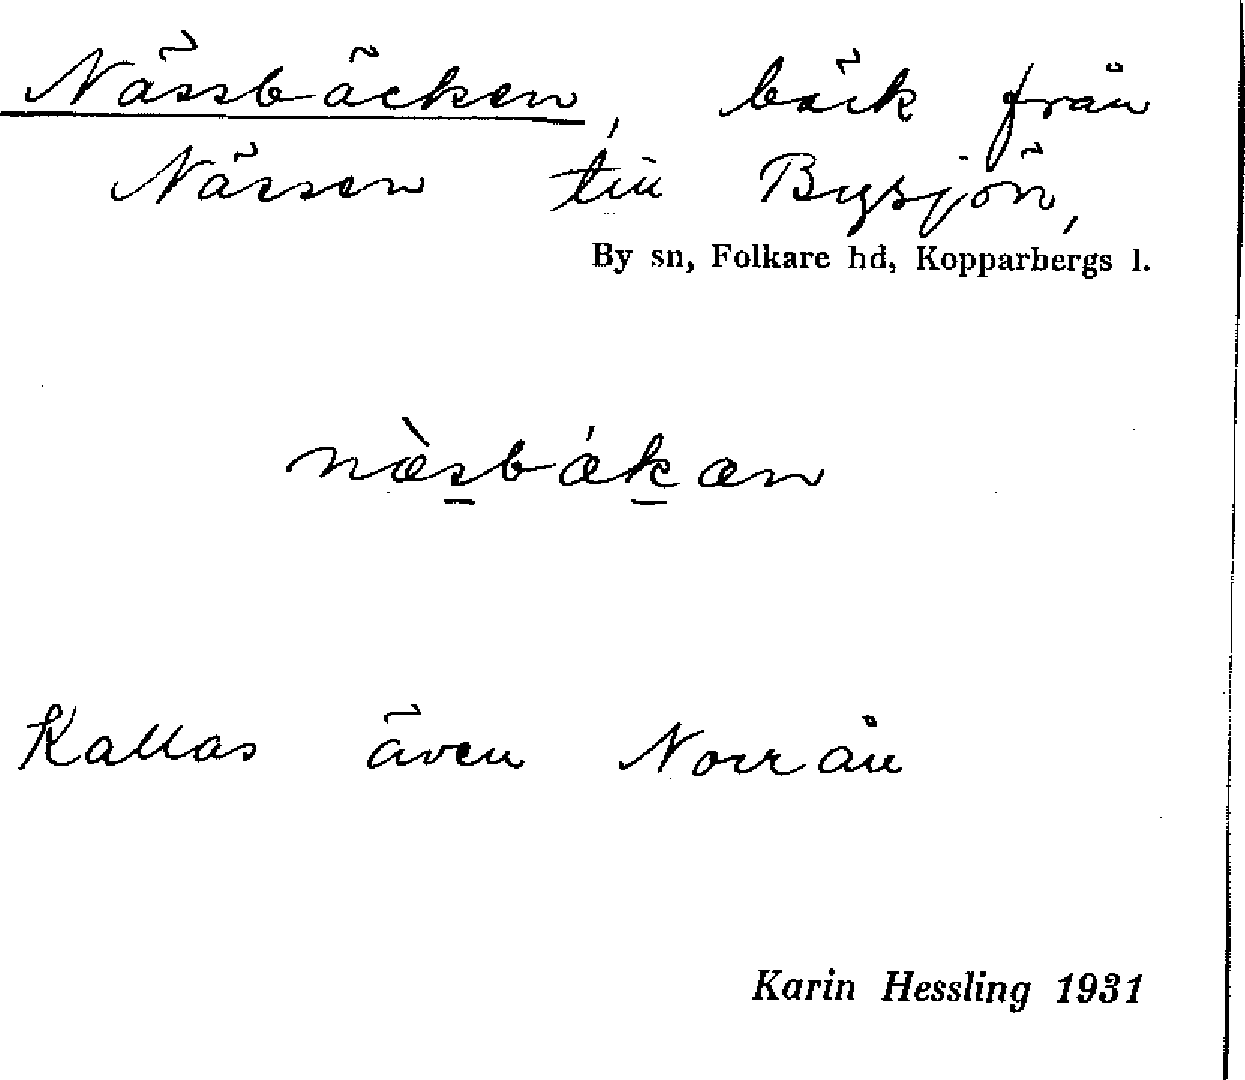 Nässbäcken, bäck från
Nässen till Bysjön,
By sn, Folkare hd, Kopparbergs l.
næ̀sbǽkæn
Kallas även Norrån
Karin Hessling 1931